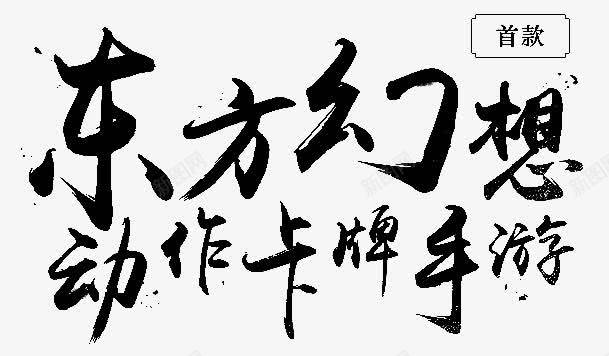 首款
东方幻想
动作卡牌手游